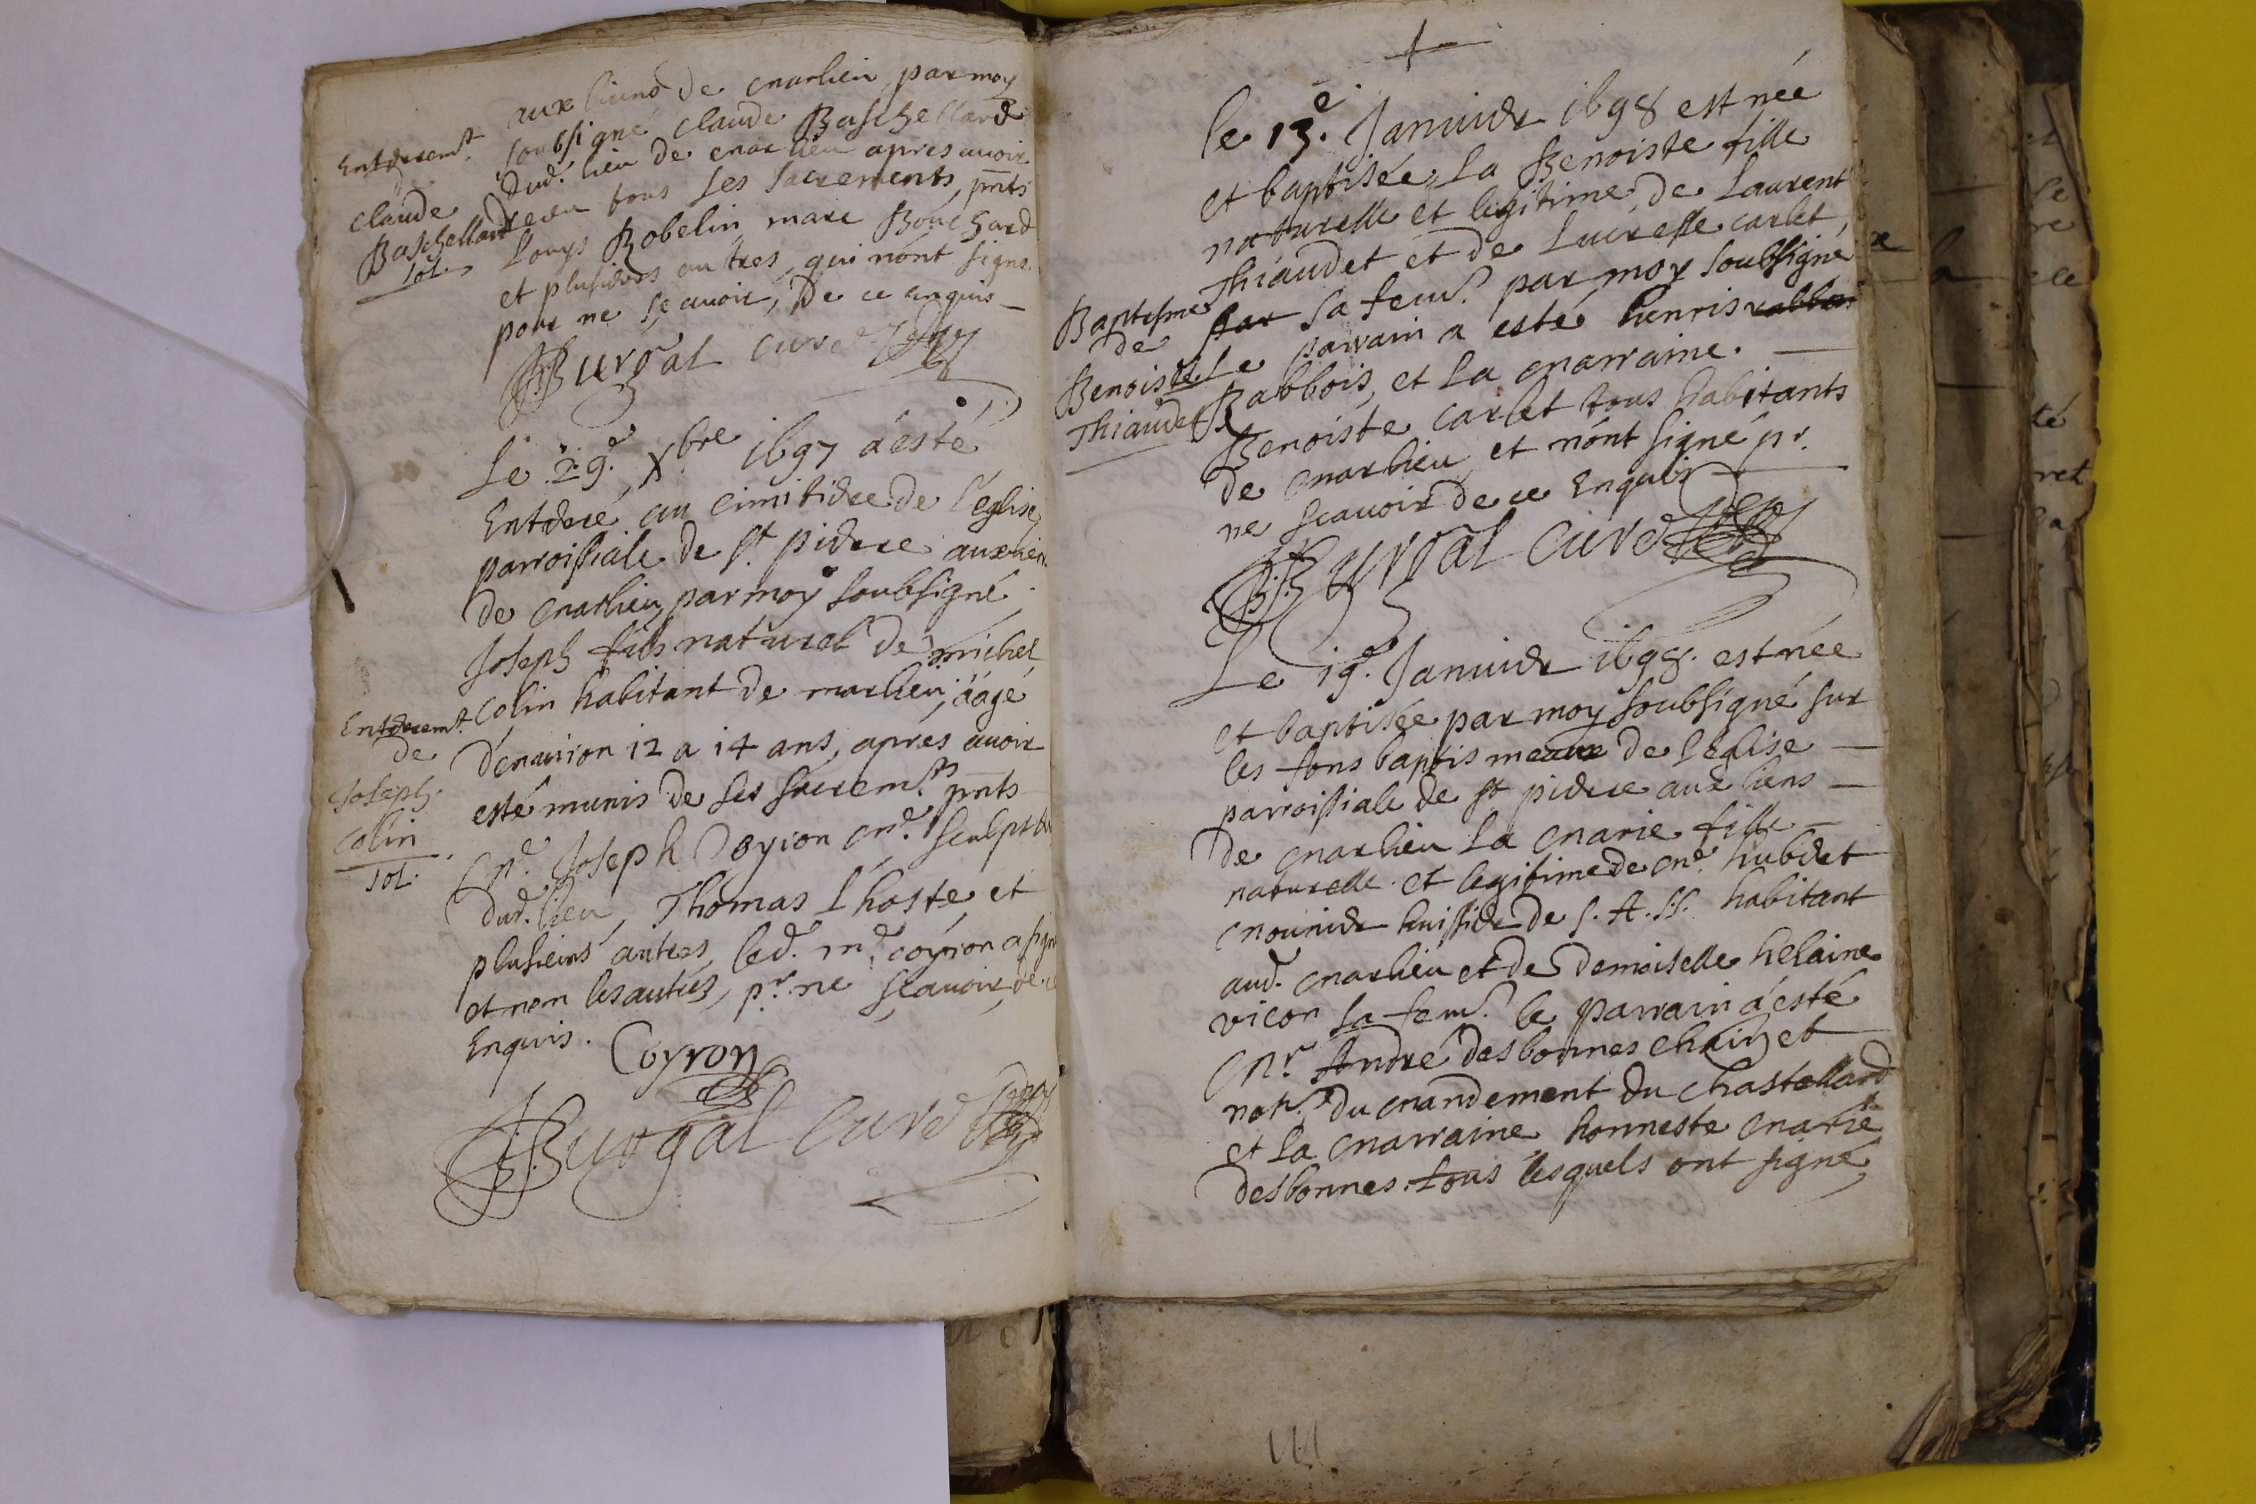 aux liens de marlieu, par moy
soubsigné claude Baschellard
dud. lieu de marlieu apres auoir
receu tous ses sacrements, pnts
Louys Robelin, marc Bouchard
et plusieurs autres, qui nónt signé
pour ne sçauoir, de ce enquis —
Enterremt.
de
claude
Baschellard
sol.
Burgal curé
Le 29.e Xbre 1697 a esté
Enterré au cimitiere de l'église
parroissiale de st. pierre aux liens
de marlieu par moy soubsigné
Joseph fils naturel de michel
Colin habitant de marlieu, aâgé
d'enuiron 12 a 14 ans, aprés auoir
esté munis de ses sacremts. pnts
Me. Joseph Coyron me. sculpteur
dud. lieu, Thomas L'hoste, et
plusieurs autres, led. me. coyron a signé
et non les autres, pr. ne sçauoir, de ce
Enquis.
Enterremt.
de
Joseph
Colin
sol.
Coyron
Burgal curé
le 13.e Januier 1698 est née
et baptisée, La Benoiste fille
naturelle et legitime, de Laurent
Thiaudet et de Lucresse carlet,
par sa fem.e par moy soubsigné
Le parrain a esté henris rabbois
Rabbois, et La marraine. —
Benoiste carlet tous habitants
de marlieu, et nónt signé pr.
ne scauoir de ce Enquis —
Baptesme
de
Benoiste
Thiaudet
Burgal curé
Le 19.e Januier 1698. est née
et baptisée par moy soubsigné sur
les fons baptismeaux de l'église —
parroissiale de st pierre aux liens —
de marlieu La marie fille —
naturelle et legitime de me. hubert
mounier huissier de S. A. SS. habitant
aud. marlieu et de demoiselle helaine
vicon sa fem.e le parrain a esté
Mr. André desbonnes chain et
notre. du mandement du chastellard
et la marraine honneste marie
desbonnes tous lesquels ont signé